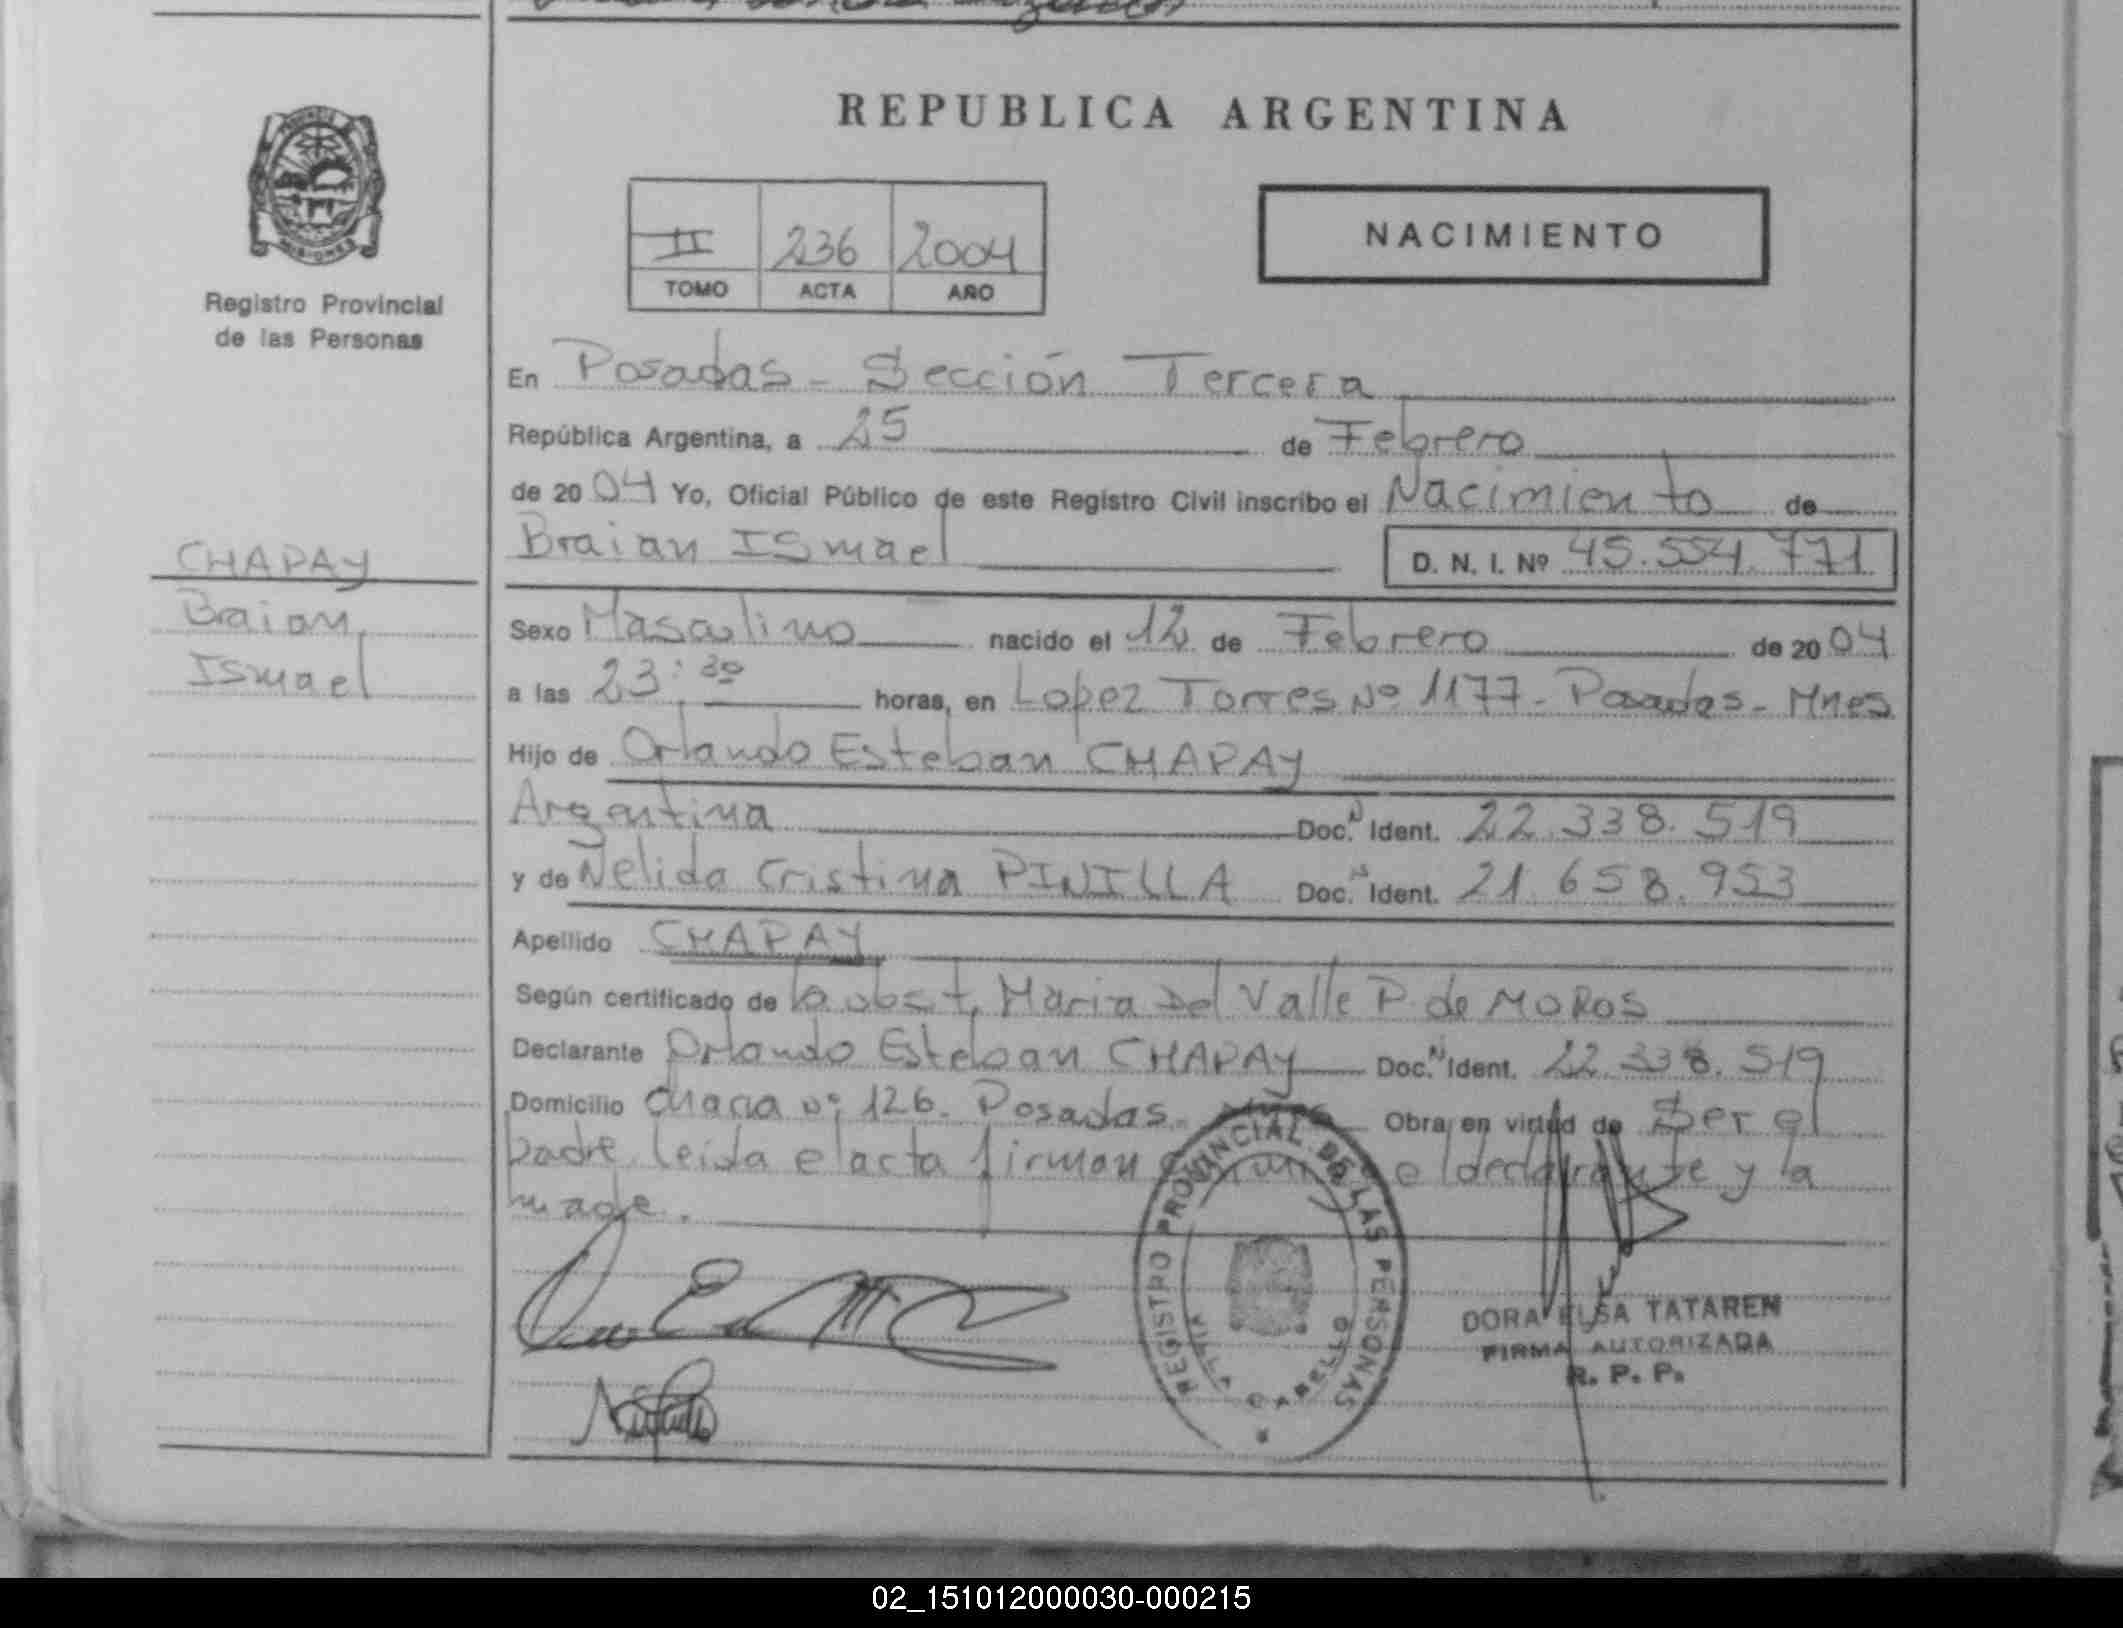 REPUBLICA ARGENTINA
PROVINCIA DE
MISIONES
Registro Provincial
de las Personas
II 236 2004
TOMO ACTA AÑO
NACIMIENTO
En Posadas - Sección Tercera
República Argentina, a 25 de Febrero
de 2004 Yo, Oficial Público de este Registro Civil inscribo el Nacimiento de
Braian Ismael D. N. I. Nº 45.554.771
CHAPAY
Braian
Ismael
Sexo Masculino nacido el 12 de Febrero de 2004
a las 23:30 horas, en Lopez Torres Nº 1177 - Posadas - Mnes
Hijo de Orlando Esteban CHAPAY
Argentina Doc. N Ident. 22.338.519
y de Nelida Cristina PINILLA Doc. N Ident. 21.658.953
Apellido CHAPAY
Según certificado de la obst. Maria Del Valle P. de MOROS
Declarante Orlando Esteban CHAPAY Doc. N Ident. 22.338.519
Domicilio chacra nº 126. Posadas - Mnes Obra en virtud de Ser el
padre leida el acta firman el declarante y la
madre.
REGISTRO PROVINCIAL DE LAS PERSONAS
VILLA CABELLO
DORA ELSA TATAREN
FIRMA AUTORIZADA
R. P. P.
02_151012000030-000215